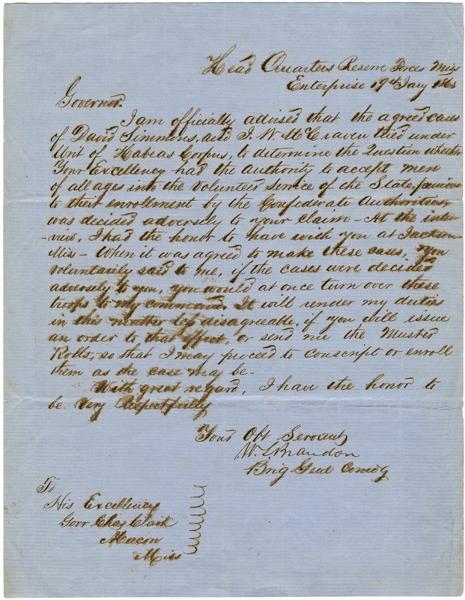 Head Quarters Reserve Forces Miss
Enterprise 19th Jany 1865
Governor.
I am officially advised that the agreed cases
of David Simmons, and J. W. McCraven tried under
Writ of Habeas Corpus, to determine the Question whether
Your Excellency had the authority to accept men
of all ages into the Volunteer Service of the State, previous
to their enrollment by the Confederate Authorities,
was decided adversely to your claim - At the inter-
-view, I had the honor to have with you at Jackson
Miss - When it was agreed to make these cases, you
voluntarily said to me, if the cases were decided
adversely to you, you would at once turn over these
troops to my command. It will render my duties
in this matter less disagreeable, if you will issue
an order to that effect, or send me the Muster
Rolls, so that I may proceed to conscript or enroll
them as the case may be -
With great regard, I have the honor to
be Very Respectfully
Your Obt Servant
W. L. Brandon
Brig Genl Comdg
To
His Excellency
Govr Chas Clark
Macon
Miss